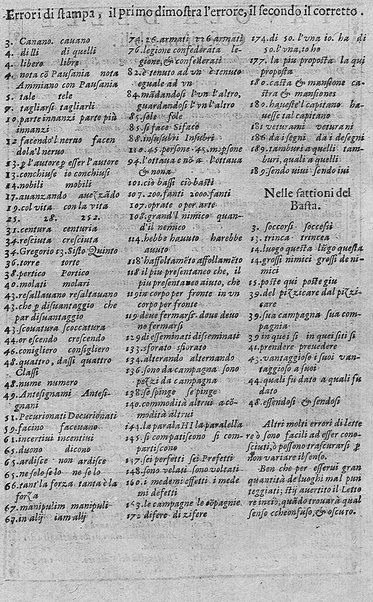 Errori di stampa, il primo dimostra l'errore, il secondo il corretto.
3. Canano. cauano
4. di li di quelli
4. libero libre
4. nota cō Pausania nota
Ammiano con Pausania
5. tale tele
7. tagliarsi tagliarli
10. parte innanzi parte più
innanzi
12 facendo'l neruo facen
dola'l neruo
13. p l'autore p esser l'autore
13. conchiuse io conchiusi
14. nobili mobili
17. auanzando auāzādo
19. col vita con la vita
25. 28. 252.
31. centura centuria
34. resciuta cresciuta
34. Gregorio 13. Sisto Quinto
36. torre torte
38. pertico Portico
40. molati molari
43. resallauano resaltauano
43. che p disuantaggio che
par disuantaggio
43. scouatura scoccatura
44. or escendo crescendo
46. consigliero consigliero
48. quattro, dassi quattro
Classi
48. nume numero
49. Antesignami Antesi-
gnani
51. Decurionati Decurionati
59. facino faceuano
61. incertiui incentiui
63. duono dicono
65. ardisce non ardisce
65. ne solo se lo ne se lo
66. tant'la forza tanta è la
forza
67. manipulim manipuli
67. in alij iam alij
74. 26. armati 126 armati
76. legione confederata le-
gione, & confederati
82. è tenuto ad vn' è tenuto
eguale ad vn'
84. mādandosi l'vn l'altro,
guardandosi l'vn l'altro
85. sole sole
85. si face si face
88. insusubri Insubri
110. 45. persone. 45. m. psone
94. l'ottaua cò nò a l'ottaua
& nona
101. ciò bassi ciò basti
107. 200. fanti 2000. fanti
107. oprate oper arte.
108. grand'l nimico quan-
d'il nemico
114. hebbe hauuto harebbe
auuto
118 hassoltamēto affollamēto
118 il piu presentaneo che, il
piu presentaneo aiuto, che
119 in corpo per fronte in vn
corpo per fronte
119 doue fermarsi. doue deuo
no fermarsi
129 disseminati disseminati
133. sforato sforato
134. alterando alternando
136. sono da campagna sono
pezzi da campagna
138. se spinge se pinge
140. commodità altrui acò-
modità altrui
141. la parala HI la paralella
145. si compatiscono si com-
partiscono
147. sei perfetti sei Prefetti
148. sono volati sono voltati
160. i medemi effetti i mede
mi defetti
153. le campagne le cōpagnie
172. difere di zifere
174. di so. l'vna io. ha di
so. l'vna, to ho
177. la piu proposta la qui
proposta.
180. castra & mansione ca-
stra & mansiones
180. haueste'l capitano ha-
uesse tal capitano
181. veturami veturani
186. dai segni dai disegni
189. tamburi a quelli tam-
buri, quali a quelli
189. sendo uiui sendo iui
Nelle fattioni del
Basta.
3. soccorsi soccesii
13. trinca trincea
14. luogo questa lūgo questa
14. grossi nimici grossi de ni-
mici
15. poste qui poste giu
39. del pizzicare dal pizzi-
care
39. sua campagna sua com-
pagnia
39 in quei si in quei siti si
41. prendere prevedere
43. vantaggioso e i suoi van-
taggioso a suoi
44. quali fu dato a quali fu
dato
48. essendosi & sendosi
Altri molti errori di lette
re ò sono facili ad esser cono-
sciuti, ò possono trascurarsi p
non variare il senso.
Ben che per esserui gran
quantità de luoghi mal pun
teggiati; sti ij auertito il Letto
re in ciò, quādo trouarà qual
senso ò cōfuso, & oscuro.